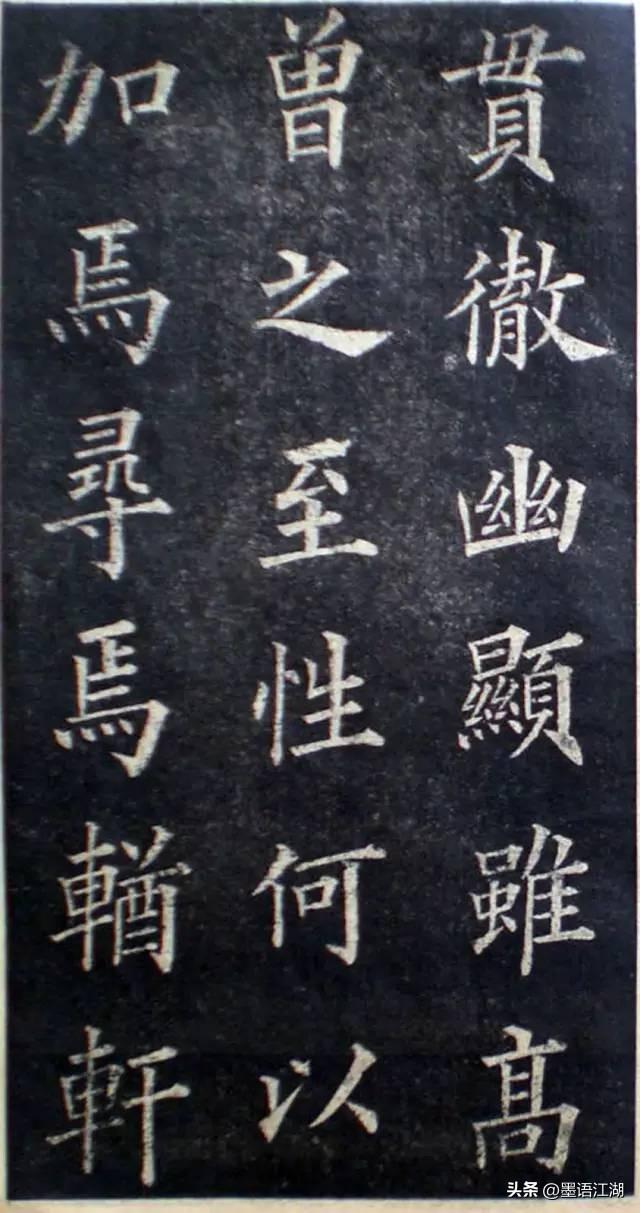 貫徹幽顯雖髙
曽之至性何以
加焉尋焉輶軒
头条 @墨语江湖